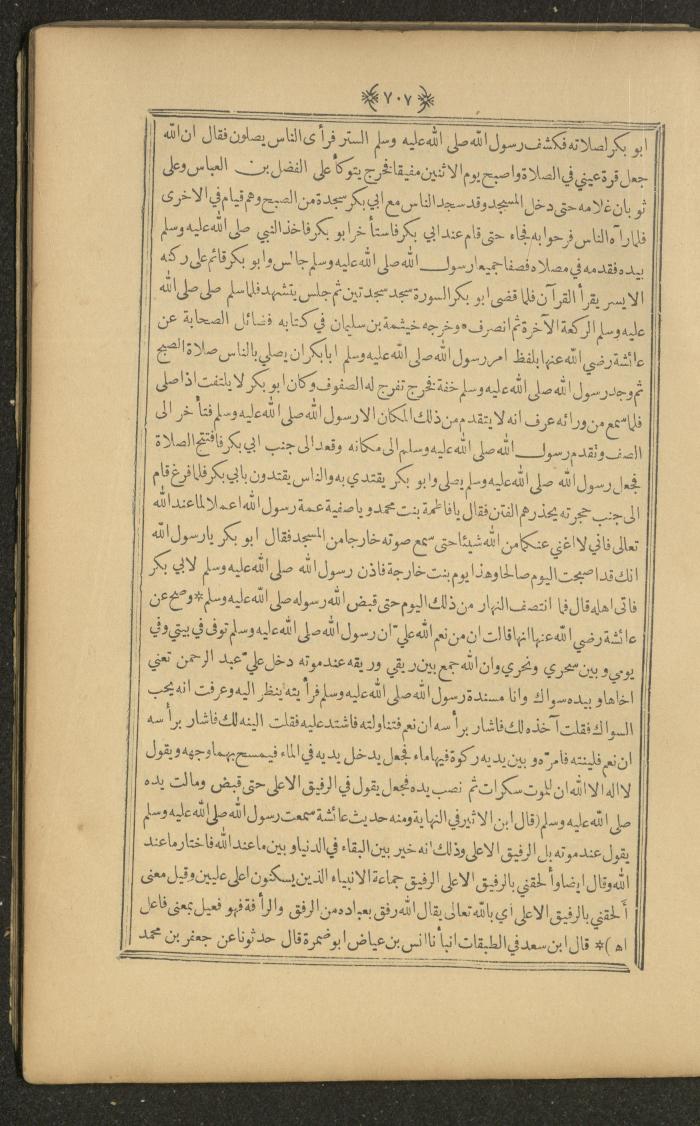 ٧٠٧
ابو بكر لصلاته فكشف رسول الله صلى الله عليه وسلم الستر فرأى الناس يصلون فقال ان الله
جعل قرة عيني في الصلاة واصبح يوم الاثنين مفيقا فخرج يتوكأ على الفضل بن العباس وعلى
ثوبان غلامه حتى دخل المسجد وقد سجد الناس مع ابي بكر سجدة من الصبح وهم قيام في الاخرى
فلما رآه الناس فرحوا به فجاء حتى قام عند ابي بكر فاستأخر ابو بكر فاخذ النبي صلى الله عليه وسلم
بيده فقدمه في مصلاه فصفا جميعا رسول الله صلى الله عليه وسلم جالس وابو بكر قائم على ركنه
الايسر يقرأ القرآن فلما قضى ابو بكر السورة سجد سجدتين ثم جلس يتشهد فلما سلم صلى صلى الله
عليه وسلم الركعة الآخرة ثم انصرف * وخرجه خيثمة بن سليمان في كتابه فضائل الصحابة عن
عائشة رضي الله عنها بلفظ امر رسول الله صلى الله عليه وسلم ابا بكر ان يصلي بالناس صلاة الصبح
ثم وجد رسول الله صلى الله عليه وسلم خفة فخرج تفرج له الصفوف وكان ابو بكر لا يلتفت اذا صلى
فلما سمع من ورائه عرف انه لا يتقدم من ذلك المكان الا رسول الله صلى الله عليه وسلم فتأخر الى
الصف وتقدم رسول الله صلى الله عليه وسلم الى مكانه وقعد الى جنب ابي بكر فافتتح الصلاة
فجعل رسول الله صلى الله عليه وسلم يصلي وابو بكر يقتدي به والناس يقتدون بابي بكر فلما فرغ قام
الى جنب حجرته يحذرهم الفتن فقال يا فاطمة بنت محمد ويا صفية عمة رسول الله اعملا لما عند الله
تعالى فاني لا اغني عنكما من الله شيئا حتى سمع صوته خارجا من المسجد فقال ابو بكر يا رسول الله
انك قد اصبحت اليوم صالحا وهذا يوم بنت خارجة فاذن رسول الله صلى الله عليه وسلم لابي بكر
فاتى اهله قال فما انتصف النهار من ذلك اليوم حتى قبض الله رسوله صلى الله عليه وسلم * وصح عن
عائشة رضي الله عنها انها قالت ان من نعم الله عليّ ان رسول الله صلى الله عليه وسلم توفى في بيتي وفي
يومي وبين سحري ونحري وان الله جمع بين ريقي وريقه عند موته دخل عليّ عبد الرحمن تعني
اخاها وبيده سواك وانا مسندة رسول الله صلى الله عليه وسلم فرأيته ينظر اليه وعرفت انه يحب
السواك فقلت آخذه لك فاشار برأسه ان نعم فتناولته فاشتد عليه فقلت الينه لك فاشار برأسه
ان نعم فلينته فامرّه وبين يديه ركوة فيها ماء فجعل يدخل يديه في الماء فيمسح بهما وجهه ويقول
لا اله الا الله ان للموت سكرات ثم نصب يده فجعل يقول في الرفيق الاعلى حتى قبض ومالت يده
صلى الله عليه وسلم (قال ابن الاثير في النهاية ومنه حديث عائشة سمعت رسول الله صلى الله عليه وسلم
يقول عند موته بل الرفيق الاعلى وذلك انه خير بين البقاء في الدنيا وبين ما عند الله فاختار ما عند
الله وقال ايضا وألحقني بالرفيق الاعلى الرفيق جماعة الانبياء الذين يسكنون اعلى عليين وقيل معنى
أَلحقني بالرفيق الاعلى اي بالله تعالى يقال الله رفق بعباده من الرفق والرأفة فهو فعيل بمعنى فاعل
اه )* قال ابن سعد في الطبقات انبأنا انس بن عياض ابو ضمرة قال حدثونا عن جعفر بن محمد